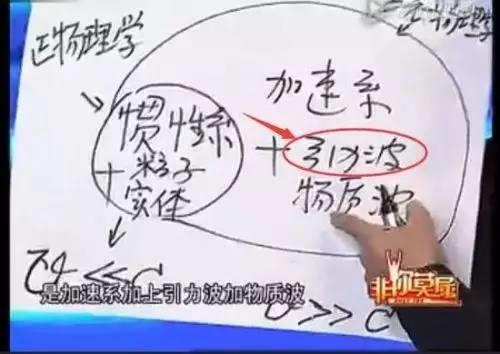 正物理学
加速系
惯性系
+引力波
+粒子
物质波
实体
<< C
>> C
是加速系加上引力波加物质波
非你莫属